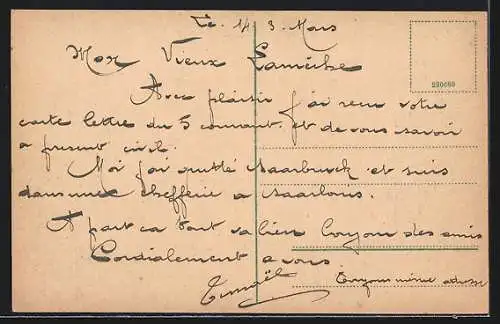 Le 14 3 Mars
Mon Vieux
290080
Avec plaisir j'ai recu votre
carte lettre du 5 courant et de vous savoir
a present civil.
Moi j'ai quitté Saarbruck et suis
dans une chefferie a Saarlouis.
A part ca tout va bien Bonjour des amis
Cordialement a vous
Toujours même adresse